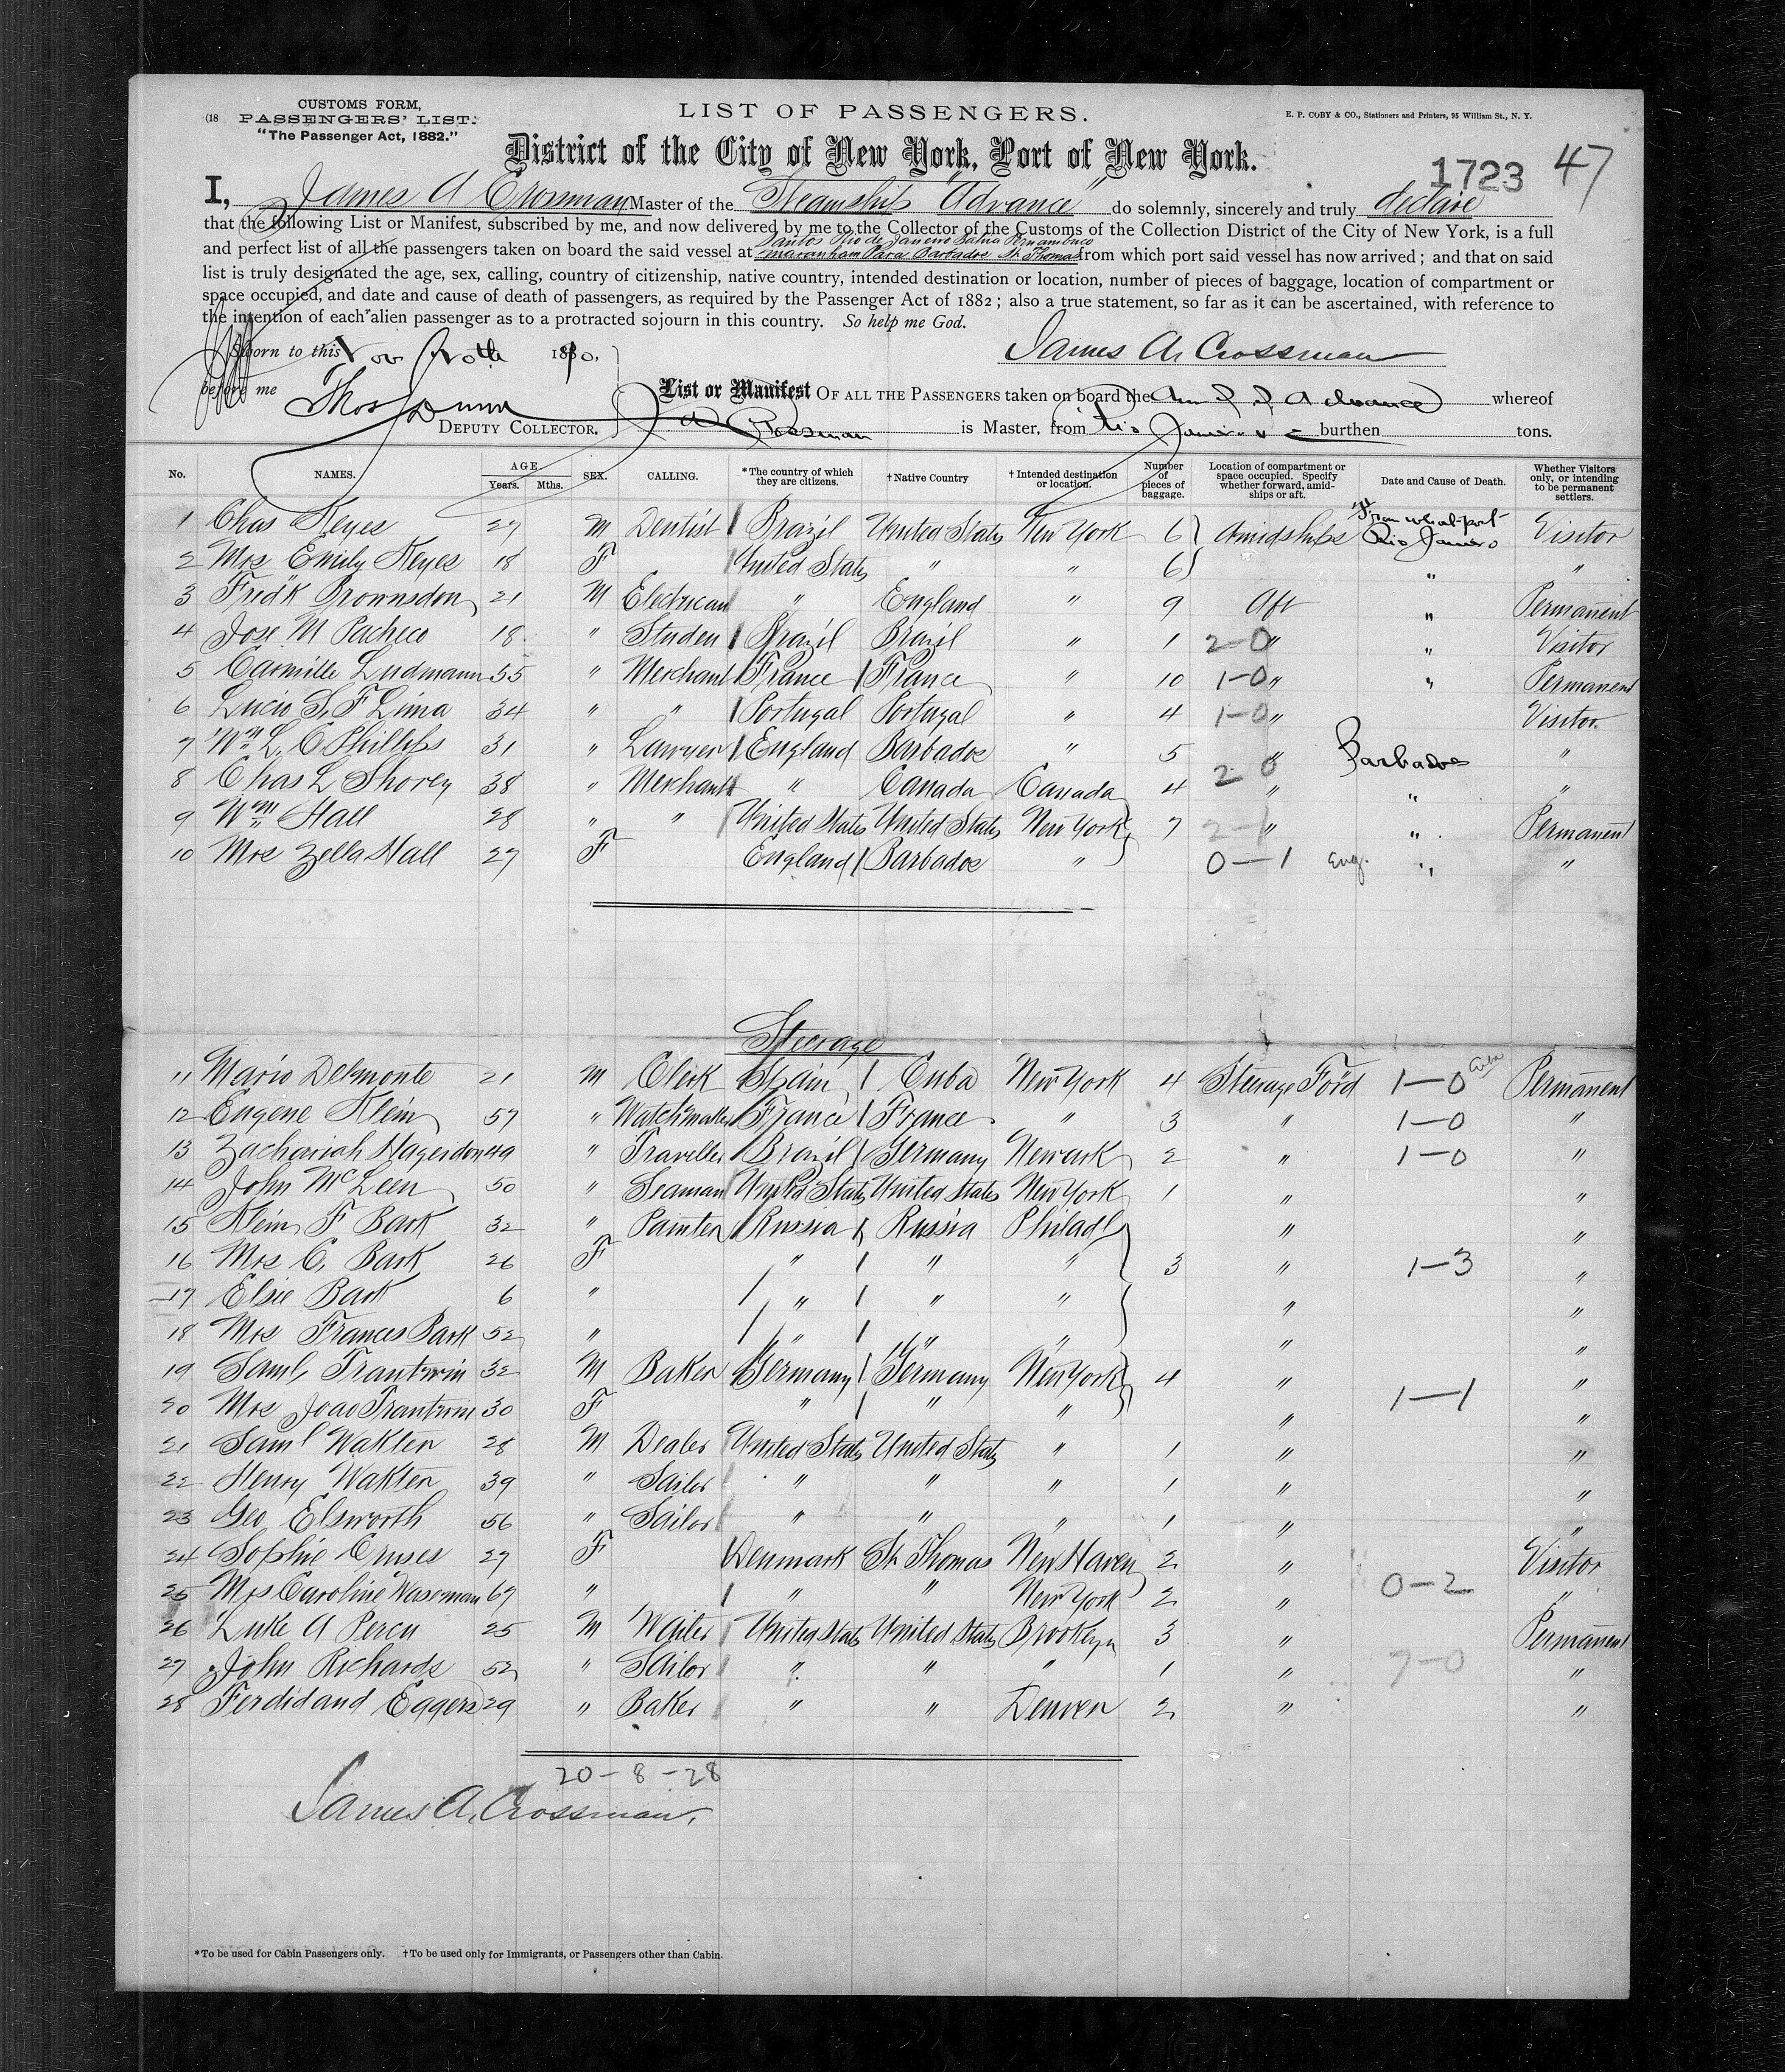 CUSTOMS FORM,
(18 PASSENGERS' LIST.
"The Passenger Act, 1882."
LIST OF PASSENGERS.
E. P. COBY & CO., Stationers and Printers, 95 William St., N. Y.
District of the City of New York, Port of New York.
1723 47
I, James A Crossman Master of the Steamship "Advance" do solemnly, sincerely and truly declare
that the following List or Manifest, subscribed by me, and now delivered by me to the Collector of the Customs of the Collection District of the City of New York, is a full
Santos Rio de Janeiro Bahia Pernambuco
and perfect list of all the passengers taken on board the said vessel at Maranham Para Barbados St. Thomas from which port said vessel has now arrived; and that on said
list is truly designated the age, sex, calling, country of citizenship, native country, intended destination or location, number of pieces of baggage, location of compartment or
space occupied, and date and cause of death of passengers, as required by the Passenger Act of 1882; also a true statement, so far as it can be ascertained, with reference to
the intention of each alien passenger as to a protracted sojourn in this country. So help me God.
Sworn to this Nov 1890,
James A. Crossman
before me Thos Dunn
List or Manifest OF ALL THE PASSENGERS taken on board the Am S. S. Advance whereof
DEPUTY COLLECTOR. J A Crossman is Master, from Rio Janeiro burthen tons.
No. NAMES. AGE. Years. Mths. SEX. CALLING. *The country of which they are citizens. †Native Country †Intended destination or location. Number of pieces of baggage. Location of compartment or space occupied. Specify whether forward, amidships or aft. Date and Cause of Death. Whether Visitors only, or intending to be permanent settlers.
From what port
1 Chas Keyes 27 M Dentist Brazil United States New York 6 Amidships Rio Janeiro Visitor
2 Mrs Emily Keyes 18 F United States " " 6 " "
3 Fredk Brownsdon 21 M Electrican " England " 9 Aft " Permanent
4 Jose M Pacheco 18 " Studen Brazil Brazil " 1 2-0 " " Visitor
5 Carmille Ludmann 55 " Merchant France France " 10 1-0 " " Permanent
6 Lucio S. F Lima 34 " " Portugal Portugal " 4 1-0 " Visitor
7 Wm L. C Phillips 31 " Lawyer England Barbados " 5 " Barbados "
8 Chas L Shorey 38 " Merchant " Canada Canada 4 2 0 " " "
9 Wm Hall 28 " " United States United States New York 7 2-1 " " Permanent
10 Mrs Zella Hall 27 F England Barbados " 0-1 Eng. " "
Steerage
11 Mario Delmonte 21 M Clerk Spain Cuba New York 4 Steerage Ford 1-0 Cuba Permanent
12 Eugene Klein 57 " Watchmaker France France " 3 " 1-0 "
13 Zachariah Hagerdon 49 " Traveller Brazil Germany Newark 2 " 1-0 "
14 John McLeen 50 " Seaman United States United States New York 1 " "
15 Klein F Bark 32 " Painter Russia Russia Philadl " "
16 Mrs C. Bark 26 F " " " 3 " 1-3 "
17 Elsie Bark 6 " " " " " "
18 Mrs Frances Bark 52 " " " " " "
19 Saml. Trantwin 32 M Baker Germany Germany New York 4 " "
20 Mrs Joao Trantwin 30 F " " " " 1-1 "
21 Saml Waklen 28 M Dealer United States United States " 1 " "
22 Henry Waklen 39 " Sailor " " " 1 " "
23 Geo Elsworth 56 " Sailor " " " 1 " "
24 Sophie Cruses 27 F Denmark St Thomas New Haven 2 " Visitor
25 Mrs Caroline Waseman 67 " " " New York 2 " 0-2 "
26 Luke A Percy 25 M Waiter United States United States Brooklyn 3 " Permanent
27 John Richards 52 " Sailor " " " 1 " 7-0 "
28 Ferdidand Eggers 29 " Baker " " Denver 2 " "
20-8-28
James A. Crossman.
*To be used for Cabin Passengers only. †To be used only for Immigrants, or Passengers other than Cabin.